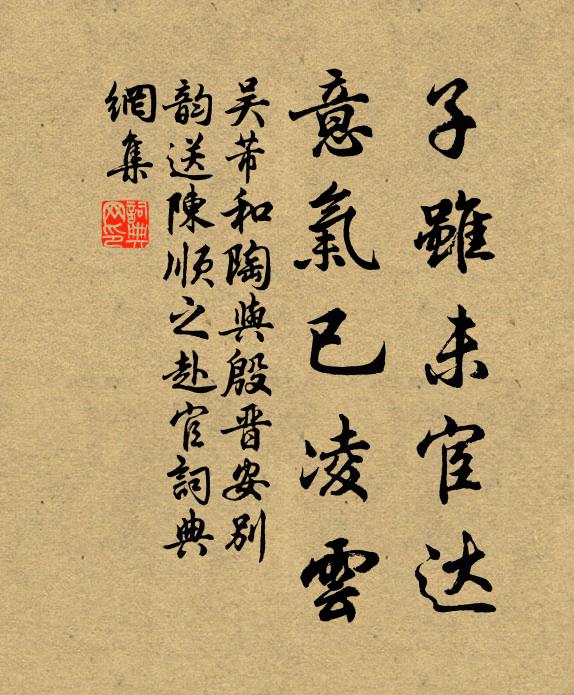 子雖未宦达
意氣已凌雲
吴芾和陶與殷晋安别
韵送陳順之赴官詞典
網集
詞典網印